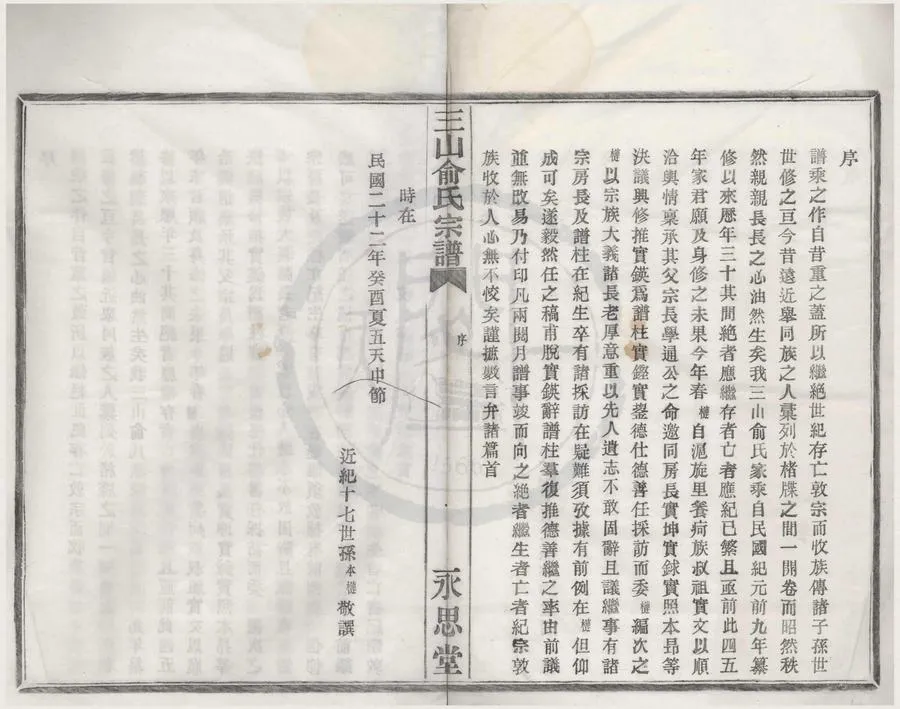 序
譜乘之作自昔重之蓋所以繼絕世紀存亡敦宗而收族傳諸子孫世
世修之亘今昔遠近舉同族之人彙列於楮牒之間一開卷而昭然秩
然親親長長之心油然生矣我三山俞氏家乘自民國紀元前九年纂
修以來歷年三十其間絕者應繼存者亡者應紀已繁且亟前此四五
年家君願及身修之未果今年春樾自滬旋里養疴族叔祖實文以順
洽輿情稟承其父宗長學通公之命邀同房長實坤實銶實照本昂等
決議興修推實鍈爲譜柱實鏗實鋆德仕德善任採訪而委樾編次之
樾以宗族大義諸長老厚意重以先人遺志不敢固辭且議繼事有諸
宗房長及譜柱在紀生卒有諸採訪在疑難須攷據有前例在樾但仰
成可矣遂毅然任之稿甫脫實鍈辭譜柱羣復推德善繼之率由前議
重無改易乃付印凡兩閱月譜事竣而向之絕者繼生者亡者紀宗敦
族收於人心無不恔矣謹摭數言弁諸篇首
時在
民國二十二年癸酉夏五天中節
近紀十七世孫本樾敬譔
三山俞氏宗譜
序
永思堂